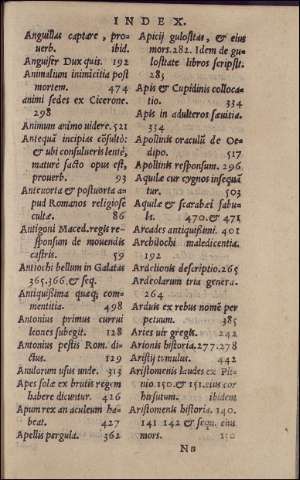 INDEX.
Anguillas captare, prouerb. ibid.
Anguifer Dux quis. 192
Animalium inimicitia post
mortem. 474
animi sedes ex Cicerone.
298
Animum animo uidere. 521
Antequā incipias cōsulto:
& ubi consulueris lente
mature facto opus est,
prouerb. 93
Anteuorta & postuorta apud
Romanos religiose
cultæ. 86
Antigoni Maced. regis responsum
de mouendis
castris. 59
Antiochi bellum in Galatas
365.366.& seq.
Antiquissima quæq; commentitia.
498
Antonius primus currui
leones subegit. 128
Antonius pestis Rom. dictus.
129
Anulorum usus unde. 313
Apes solæ ex brutis regem
habere dicuntur. 426
Apum rex an aculeum habeat.
427
Apellis pergula. 362
Apicij gulositas, & eius
mors. 282. Idem de gulositate
libros scripsit.
285
Apis & Cupidinis collocatio.
334
Apis in adulteros sæuitia.
334
Apollinis oraculū de Oedipo.
517
Apollinis responsum. 296.
Aquilæ cur cygnos insequātur.
503
Aquilæ & scarabæi fabula.
470.& 471
Arcades antiquißimi. 401
Archilochi maledicentia.
192
Ardelionis descriptio. 265
Ardeolarum tria genera.
264
Arduis ex rebus nomē perpetuum.
385
Aries uir gregis. 242
Arionis historia. 277.278
Aristij tumulus. 442
Aristomenis laudes ex Plinio
150.& 151. eius cor
hirsutum. ibidem
Aristomenis historia. 140.
141 142 & sequ. eius
mors. 150
Nn